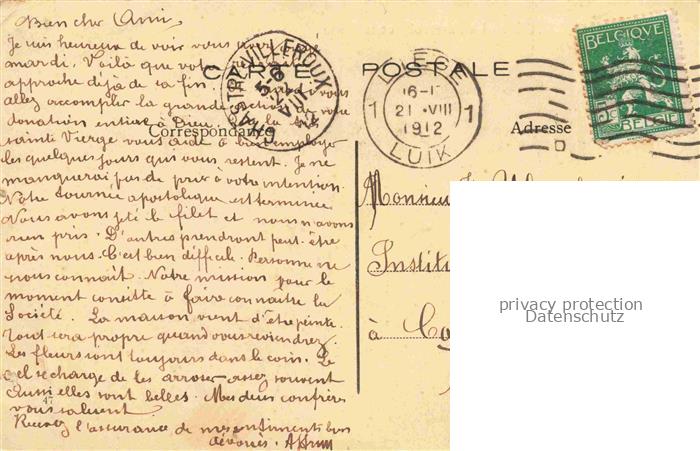 Bien cher Ami,
Je suis heureux de voir vous
mardi. Voilà que
approche déjà de sa fin. vous
allez accomplir la grande de votre
donation entière à Dieu. la très
sainte Vierge vous aide à bien employer
les quelques jours qui vous restent. Je ne
manquerai pas de prier à votre intention.
Notre tournée apostolique est terminée
Nous avons jeté le filet et nous n'avons
rien pris. D'autres prendront peut-être
après nous. C'est bien difficile. Personne ne
nous connaît. Notre mission pour le
moment consiste à faire connaître la
Société. La maison vient d'être peinte.
Tout sera propre quand vous reviendrez.
Les fleurs sont toujours dans le coin. Le
ciel se charge de les arroser assez souvent
aussi elles sont belles. Mes deux confrères
vous saluent
47
Recevez l'assurance de mes sentiments bien
dévoués.
CARTE POSTALE
Correspondance
Adresse
MASTRY-VILLEROUX
LIEGE
16-1
1 21 VIII 1
1912
LUIK
BELGIQUE
5c 5c
BELGIE
Monsieur
Institu
à Co
privacy protection
Datenschutz